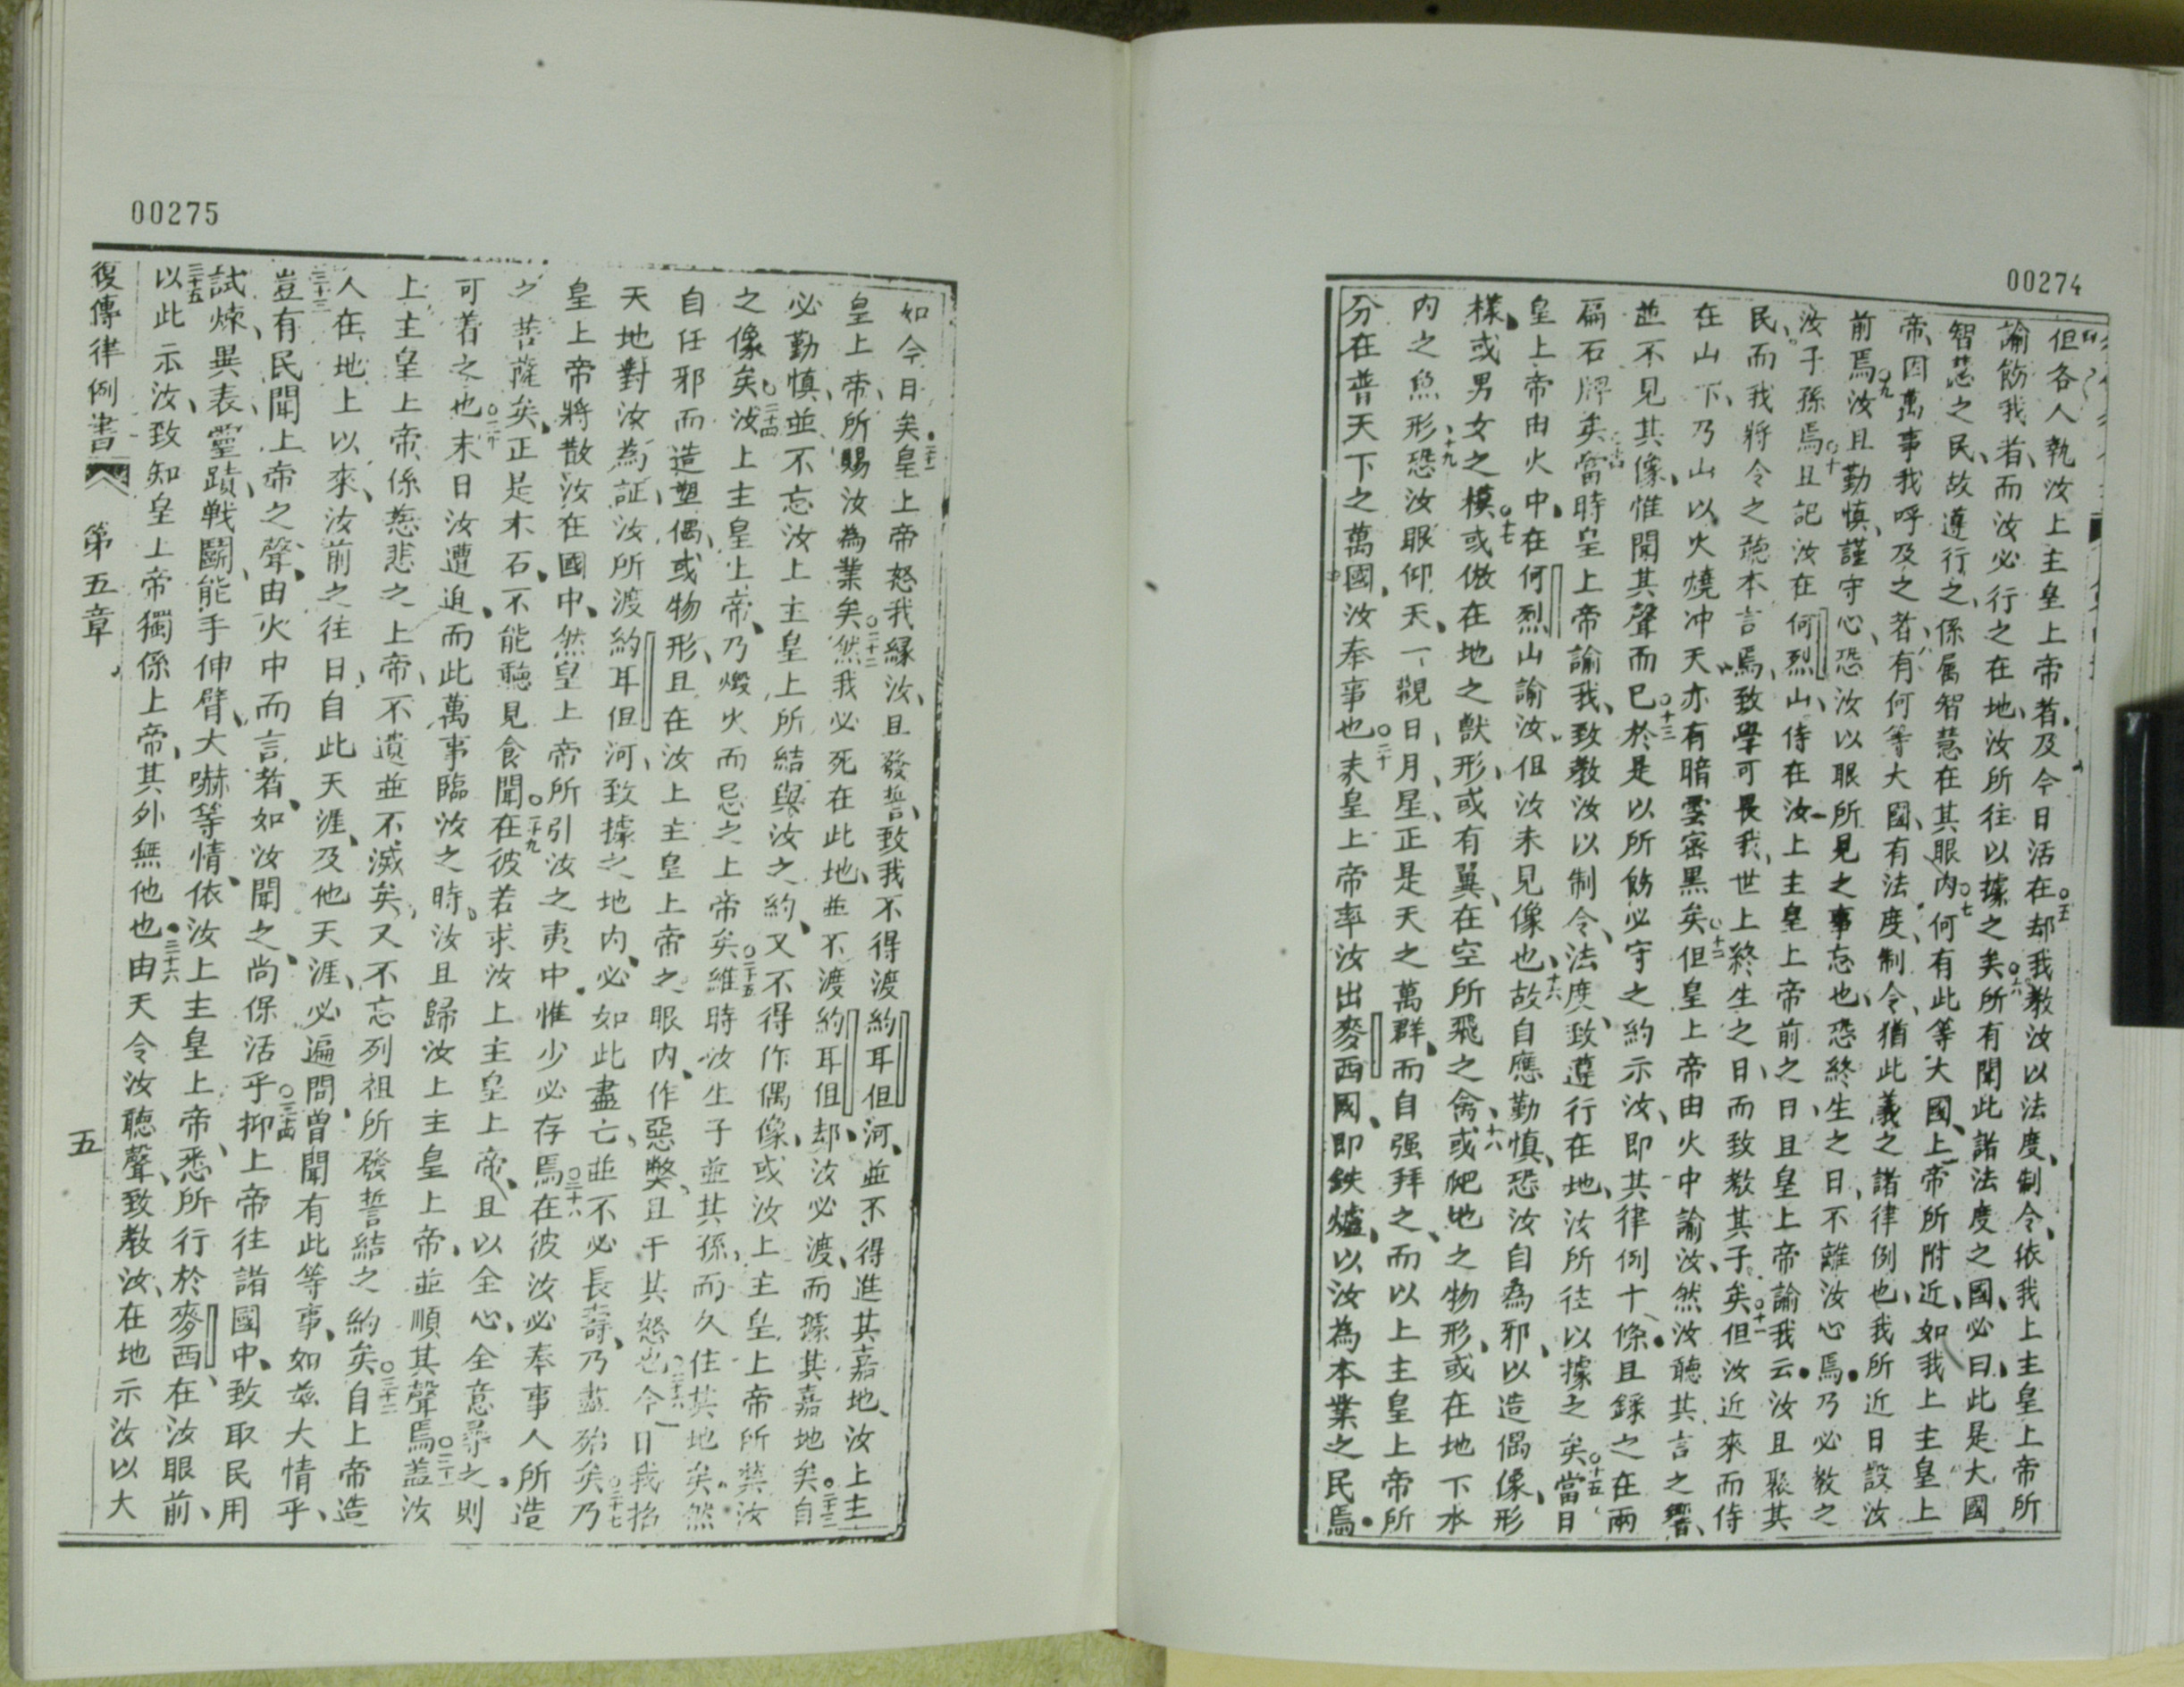 00274
但各人執汝上主皇上帝者、及今日活在、○五却我教汝以法度、制令、依我上主皇上帝所
諭飭我者、而汝必行之在地、汝所往以據之矣、○六所有聞此諸法度之國、必曰、此是大國
智慧之民、故遵行之、係属智慧在其眼内、○七何有此等大國、上帝所附近、如我上主皇上
帝、因萬事我呼及之者、○八有何等大國、有法度、制令、猶此義之諸律例也、我所近日設汝
前焉、○九汝且勤慎、謹守心、恐汝以眼所見之事忘也、恐終生之日、不離汝心焉、乃必教之
汝子孫焉、○十且記汝在何烈山、侍在汝上主皇上帝前之日、且皇上帝諭我云、汝且聚其
民、而我將令之聽本言焉、致學可畏我、世上終生之日、而致教其子矣、○十一但汝近來而侍
在山下、乃山以火燒冲天、亦有暗雲密黑矣、○十二但皇上帝由火中諭汝、然汝聽其言之響、
並不見其像、惟聞其聲而已、○十三於是以所飭必守之約示汝、即其律例十條、且錄之在兩
扁石牌矣、○十四當時皇上帝諭我、致教汝以制令、法度、致遵行在地、汝所往以據之矣、○十五當日
皇上帝由火中、在何烈山諭汝、但汝未見像也、○十六故自應勤慎、恐汝自為邪、以造偶像、形
樣、或男女之模、○十七或倣在地之獸形、或有翼、在空所飛之禽、○十八或爬地之物形、或在地下水
内之魚形、○十九恐汝眼仰天、一觀日、月、星、正是天之萬群、而自强拜之、而以上主皇上帝所
分在普天下之萬國、汝奉事也、○二十夫皇上帝率汝出麥西國、即鉄爐、以汝為本業之民焉、
00275
如今日矣、○二十一皇上帝怒我緣汝、且發誓、致我不得渡約耳但河、並不得進其嘉地、汝上主
皇上帝、所賜汝為業矣、○二十二然我必死在此地、並不渡約耳但、却汝必渡、而據其嘉地矣、○二十三自
必勤慎、並不忘汝上主皇上所結與汝之約、又不得作偶像、或汝上主皇上帝所禁汝
之像矣、○二十四汝上主皇上帝、乃燬火而忌之上帝矣、○二十五維時汝生子並其孫、而久住其地矣、然
自任邪而造塑偶、或物形、且在汝上主皇上帝之眼内、作惡獘、且干其怒也、○二十六今日我招
天地對汝為証、汝所渡約耳但河、致據之地内、必如此盡亡、並不必長壽、乃盡殆矣、○二十七乃
皇上帝將散汝在國中、然皇上帝所引汝之夷中、惟少必存焉、○二十八在彼汝必奉事人所造
之菩薩矣、正是木石、不能聽見食聞、○二十九在彼若求汝上主皇上帝、且以全心、全意尋之、則
可着之也、○三十末日汝遭迫、而此萬事臨汝之時、汝且歸汝上主皇上帝、並順其聲焉、○三十一盖汝
上主皇上帝、係慈悲之上帝、不遺並不滅矣、又不忘列祖所發誓結之約矣、○三十二自上帝造
人在地上以來、汝前之往日、自此天涯、及他天涯、必遍問、曾聞有此等事、如兹大情乎、
○三十三豈有民聞上帝之聲、由火中而言者、如汝聞之、尚保活乎、○三十四抑上帝往諸國中、致取民用
試煉、異表、靈蹟、戰鬬、能手伸臂、大嚇等情、依汝上主皇上帝、悉所行於麥西、在汝眼前、
○三十五以此示汝、致知皇上帝獨係上帝、其外無他也、○三十六由天令汝聽聲、致教汝、在地示汝以大
復傳律例書 第五章 五